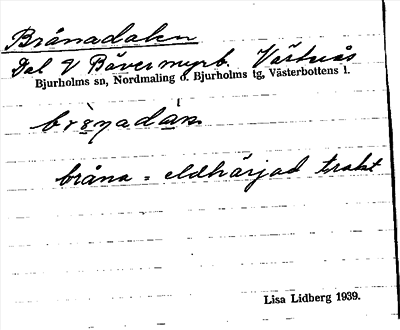 Brånadalen
Dal V Bävermyrb. Västnås
Bjurholms sn, Nordmaling o. Bjurholms tg, Västerbottens l.
brånadàn
bråna = eldhärjad trakt
Lisa Lidberg 1939.